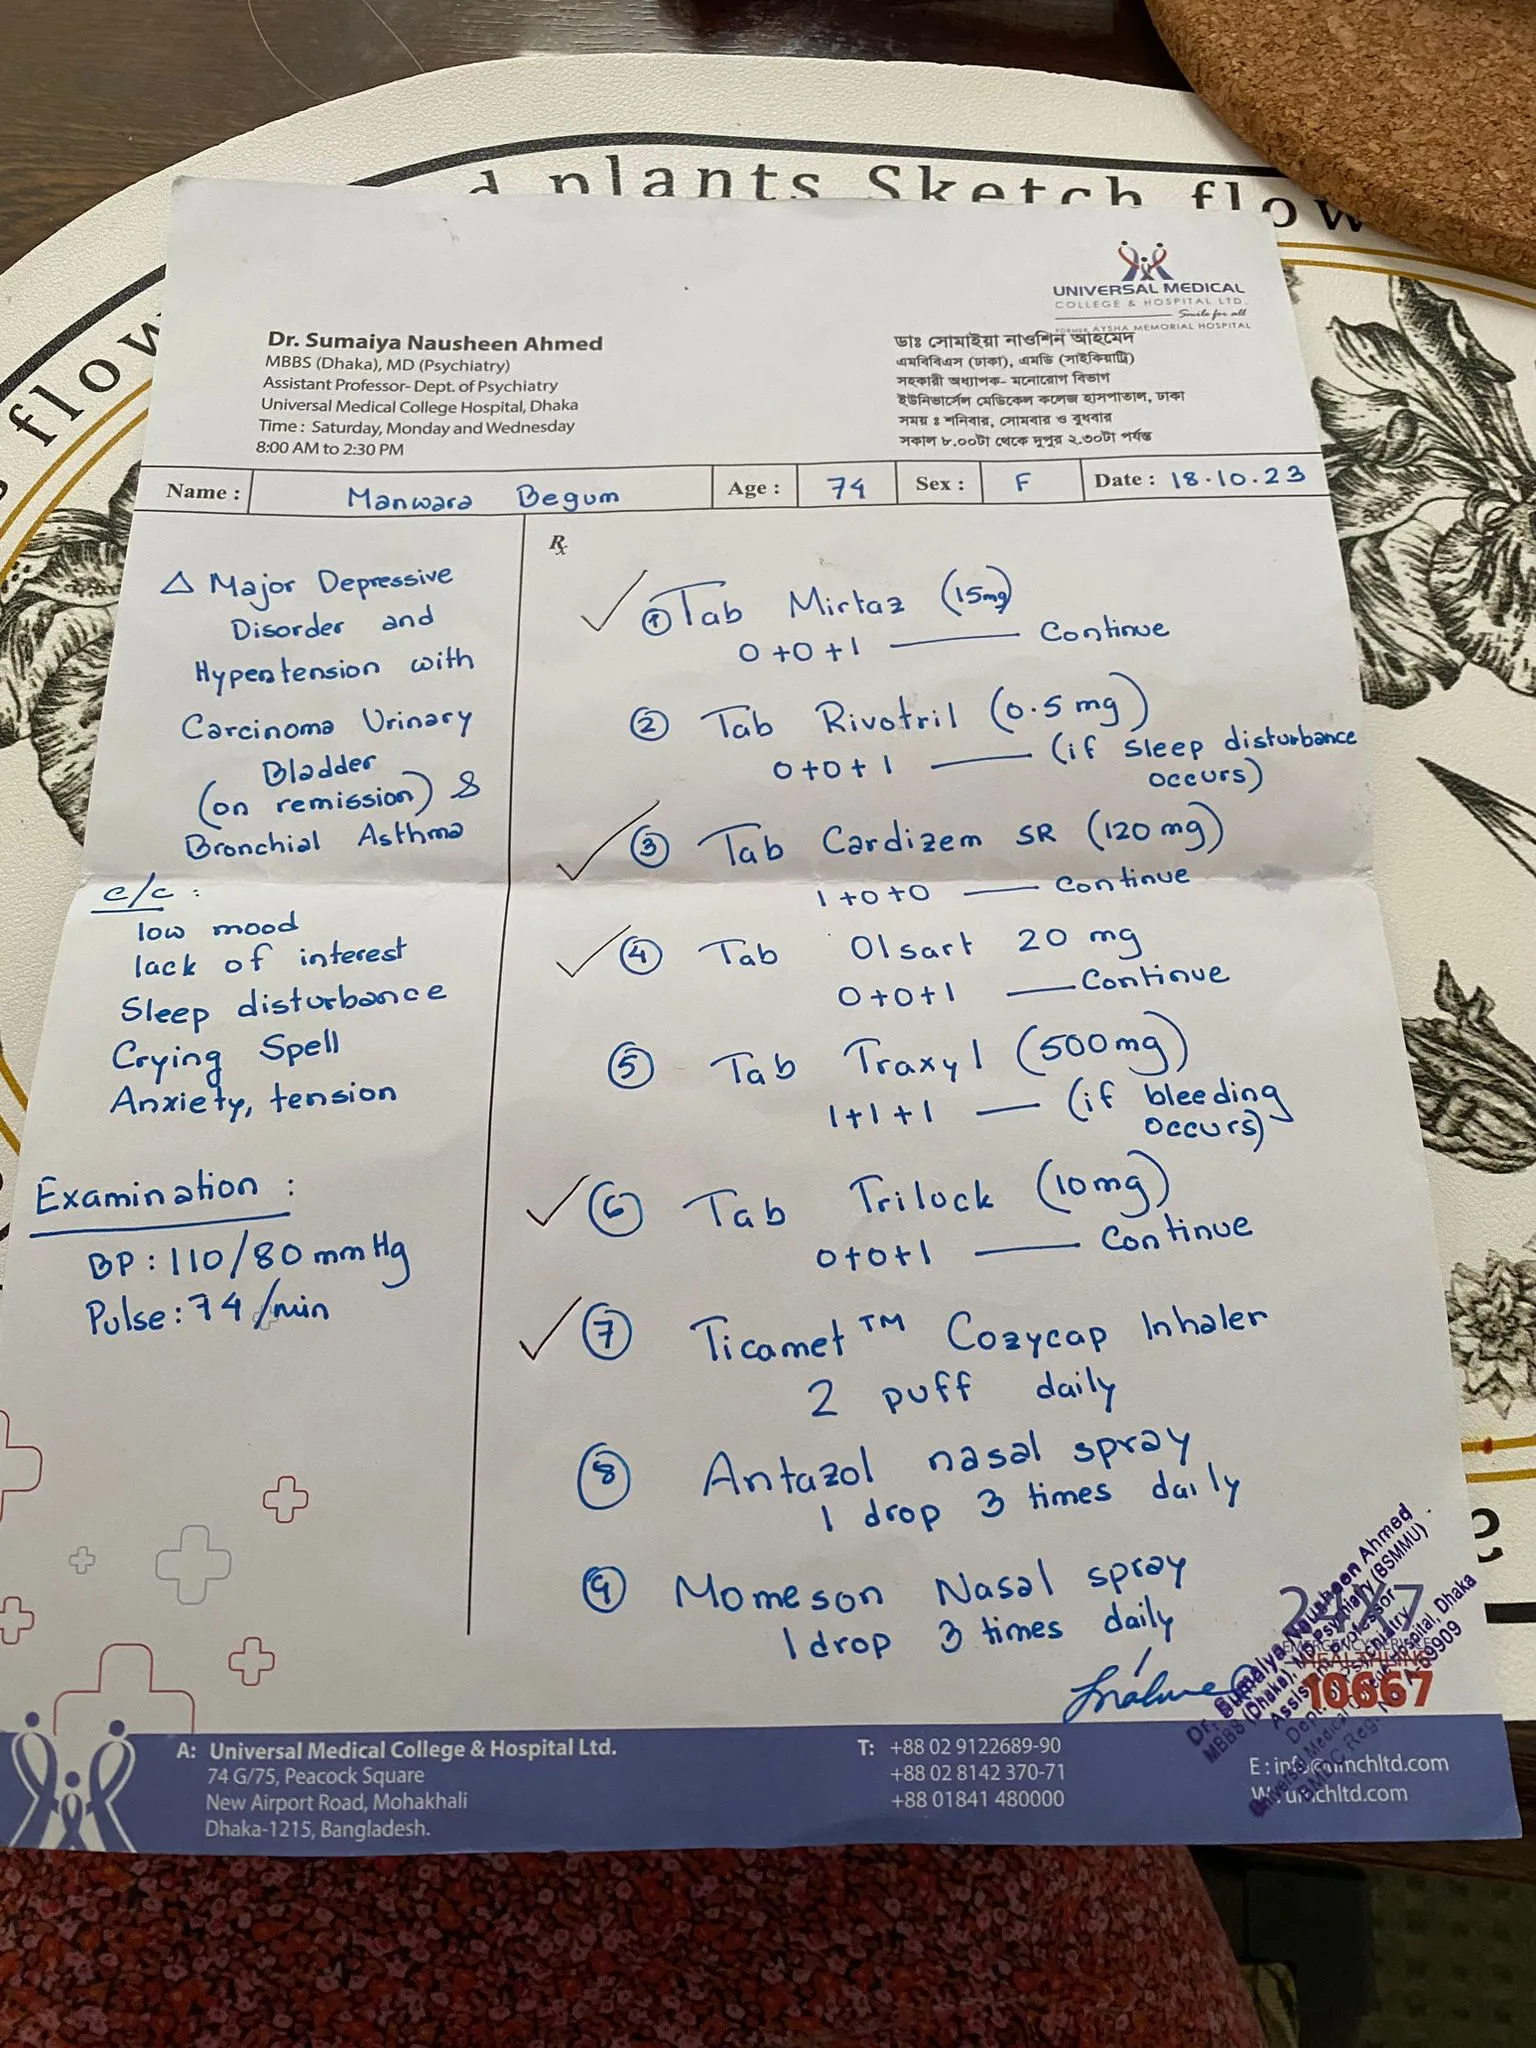 d plants Sketch flow
flow
UNIVERSAL MEDICAL
COLLEGE & HOSPITAL LTD.
Smile for all
FORMER AYSHA MEMORIAL HOSPITAL
Dr. Sumaiya Nausheen Ahmed
MBBS (Dhaka), MD (Psychiatry)
Assistant Professor- Dept. of Psychiatry
Universal Medical College Hospital, Dhaka
Time : Saturday, Monday and Wednesday
8:00 AM to 2:30 PM
ডাঃ সোমাইয়া নাওশিন আহমেদ
এমবিবিএস (ঢাকা), এমডি (সাইকিয়াট্রি)
সহকারী অধ্যাপক- মনোরোগ বিভাগ
ইউনিভার্সেল মেডিকেল কলেজ হাসপাতাল, ঢাকা
সময় ঃ শনিবার, সোমবার ও বুধবার
সকাল ৮.০০টা থেকে দুপুর ২.৩০টা পর্যন্ত
Name : Manwara Begum Age : 74 Sex : F Date : 18.10.23
△ Major Depressive
Disorder and
Hypertension with
Carcinoma Urinary
Bladder
(on remission) &
Bronchial Asthma
c/c :
low mood
lack of interest
Sleep disturbance
Crying Spell
Anxiety, tension
Examination :
BP : 110/80 mmHg
Pulse : 74 /min
Rx
① Tab Mirtaz (15mg)
0+0+1 —— Continue
② Tab Rivotril (0.5 mg)
0+0+1 —— (if sleep disturbance
occurs)
③ Tab Cardizem SR (120 mg)
1+0+0 —— Continue
④ Tab Olsart 20 mg
0+0+1 —— Continue
⑤ Tab Traxyl (500mg)
1+1+1 —— (if bleeding
occurs)
⑥ Tab Trilock (10mg)
0+0+1 —— Continue
⑦ Ticamet™ Cozycap Inhaler
2 puff daily
⑧ Antazol nasal spray
1 drop 3 times daily
⑨ Momeson Nasal spray
1 drop 3 times daily
Dr. Sumaiya Nausheen Ahmed
MBBS (Dhaka), MD Psychiatry (BSMMU)
Assistant Professor
Dept. of Psychiatry
Universal Medical College Hospital, Dhaka
24/7
10667
A: Universal Medical College & Hospital Ltd.
74 G/75, Peacock Square
New Airport Road, Mohakhali
Dhaka-1215, Bangladesh.
T: +88 02 9122689-90
+88 02 8142 370-71
+88 01841 480000
E : info@umchltd.com
W: umchltd.com